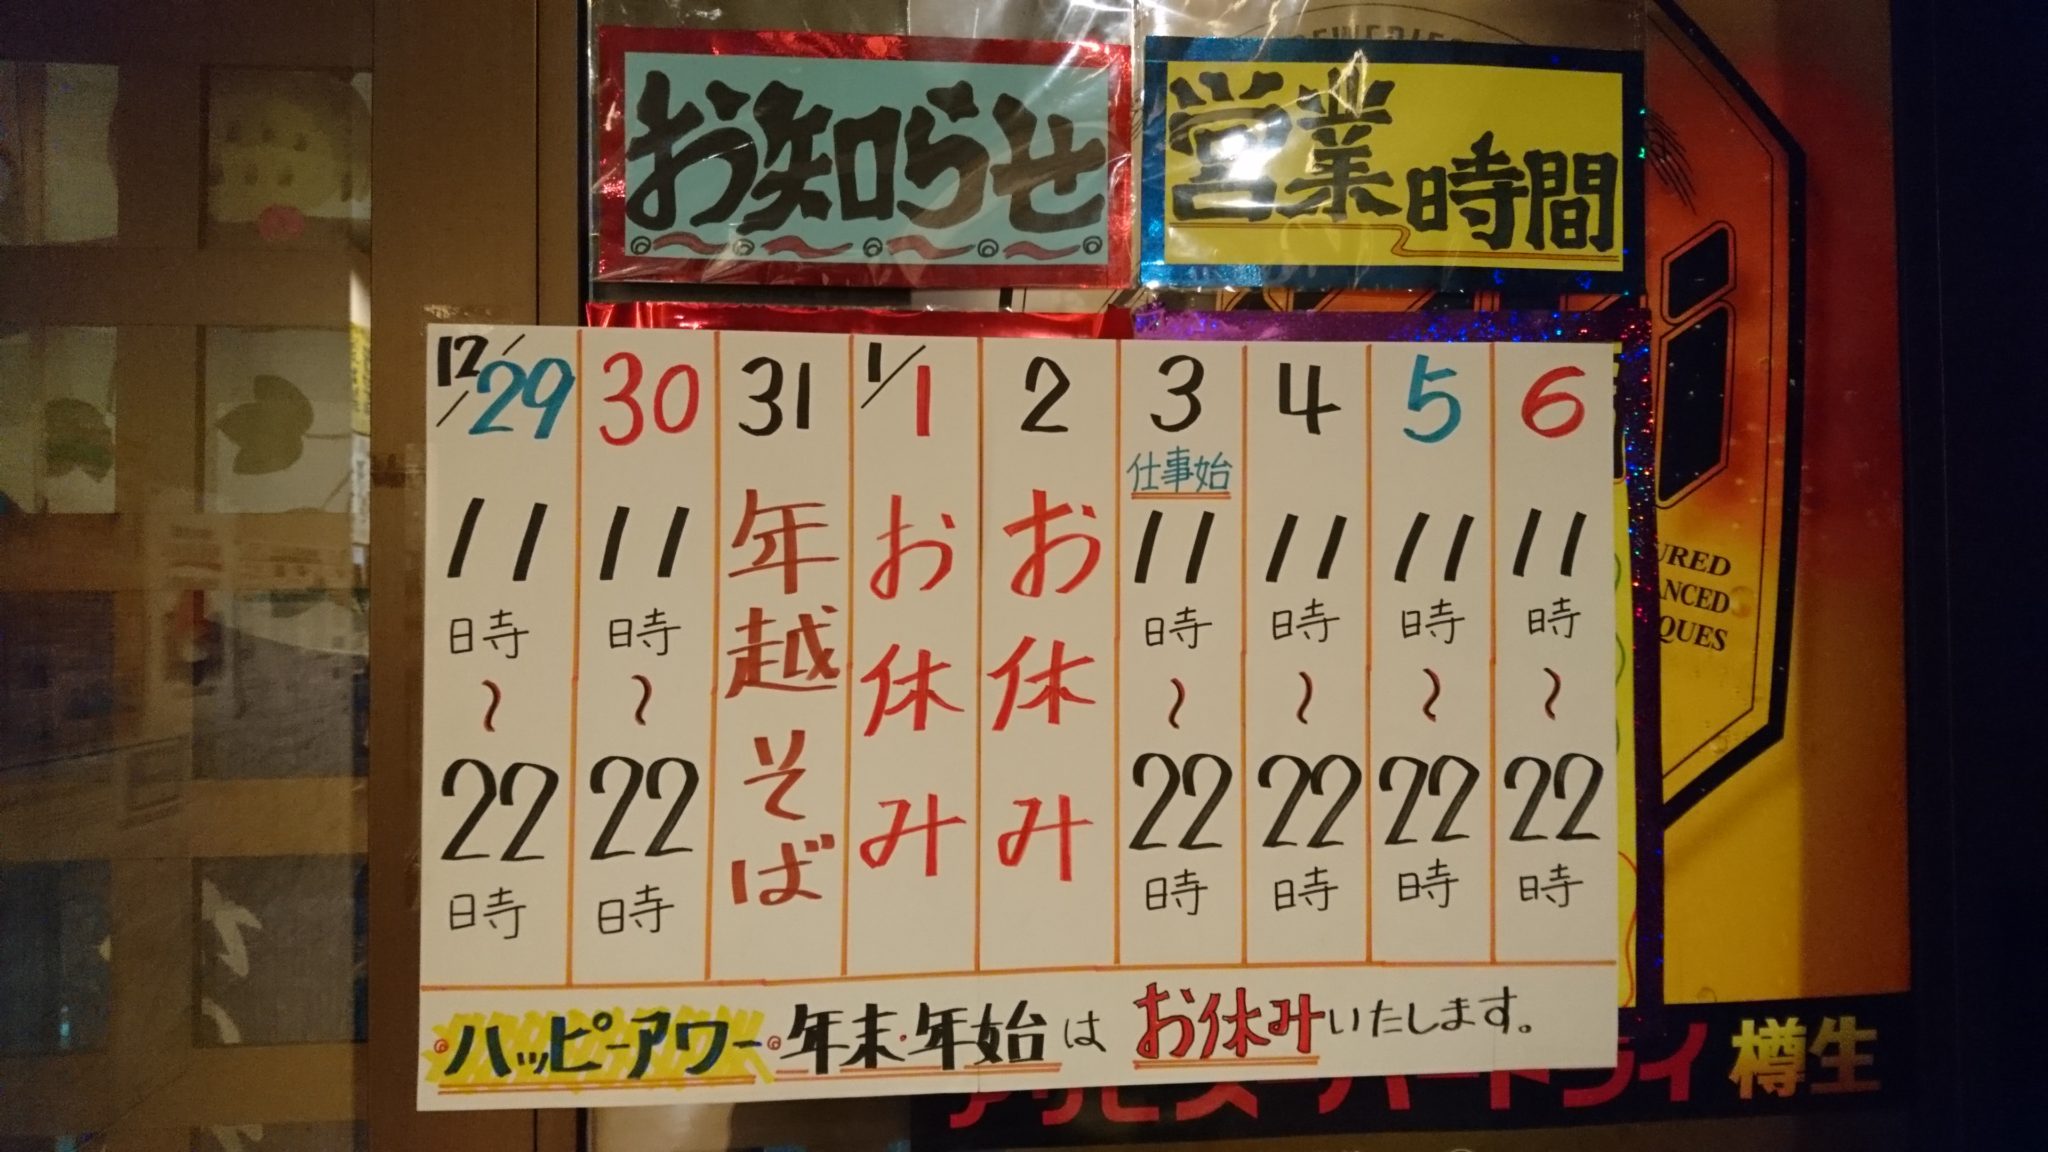 お知らせ
営業時間
12/29
11時〜22時
30
11時〜22時
31
年越そば
1/1
お休み
2
お休み
3
仕事始
11時〜22時
4
11時〜22時
5
11時〜22時
6
11時〜22時
ハッピーアワー 年末・年始は お休みいたします。
URED
ANCED
QUES
アサヒスーパードライ 樽生